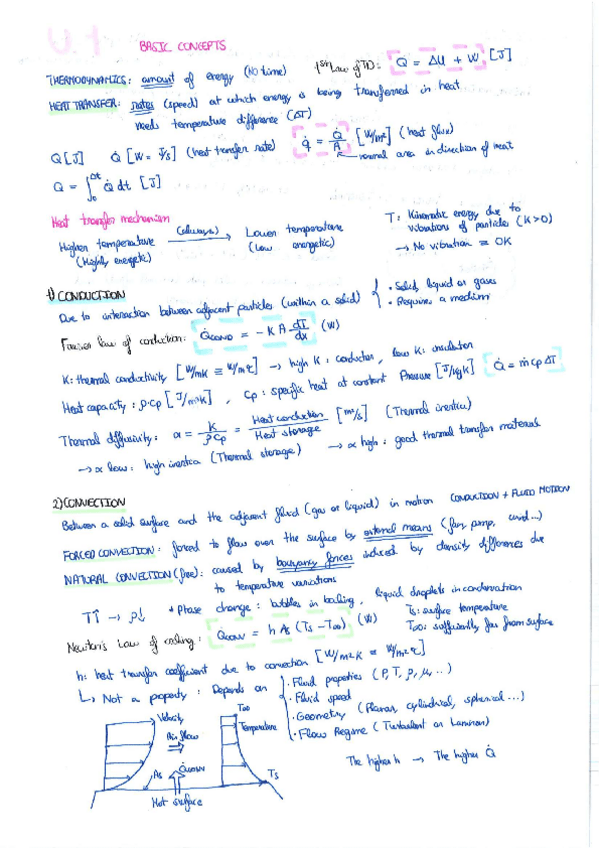 U.1
BASIC CONCEPTS
THERMODYNAMICS: amount of energy (NO time) 1st Law of TD: Q = ΔU + W [J]
HEAT TRANSFER: rates (speed) at which energy is being transferred in heat
needs temperature difference (ΔT)
Q [J] Q̇ [W = J/s] (heat transfer rate) q̇ = Q̇/A [W/m²] (heat flux)
normal area in direction of heat
Q = ∫₀^Δt Q̇ dt [J]
Heat transfer mechanism
Higher temperature (always) → Lower temperature
(Highly energetic) (Low energetic)
T: Kinematic energy due to
vibrations of particles (K>0)
→ No vibration ≡ 0K
1) CONDUCTION
Due to interaction between adjacent particles (within a solid) { · Solid, liquid or gases
· Requires a medium
Fourier law of conduction: Q̇COND = -KA dT/dx (W)
K: thermal conductivity [W/mK ≡ W/m°C] → high K: conductor, low K: insulator
Heat capacity: ρ·Cp [J/m³K], Cp: specific heat at constant Pressure [J/kgK] Q̇ = ṁ Cp ΔT
Thermal diffusivity: α = K/ρCp = Heat conduction/Heat storage [m²/s] (Thermal inertia)
→ α low: high inertia (Thermal storage) → α high: good thermal transfer material
2) CONVECTION
Between a solid surface and the adjacent fluid (gas or liquid) in motion CONDUCTION + FLUID MOTION
FORCED CONVECTION: forced to flow over the surface by external means (fan, pump, wind...)
NATURAL CONVECTION (free): caused by buoyancy forces induced by density differences due
to temperature variations
T↑ → ρ↓ * Phase change: bubbles in boiling, liquid droplets in condensation
Newton's Law of cooling: Q̇CONV = h As (Ts - T∞) (W)
Ts: surface temperature
T∞: sufficiently far from surface
h: heat transfer coefficient due to convection [W/m²K ≡ W/m²°C]
↳ Not a property: Depends on { · Fluid properties (P, T, ρ, μ, ..)
· Fluid speed
· Geometry (Planar, cylindrical, spherical ...)
· Flow Regime (Turbulent or Laminar)
The higher h → The higher Q̇
Velocity
Air flow
T∞
Temperature
As
Q̇CONV
Ts
Hot surface